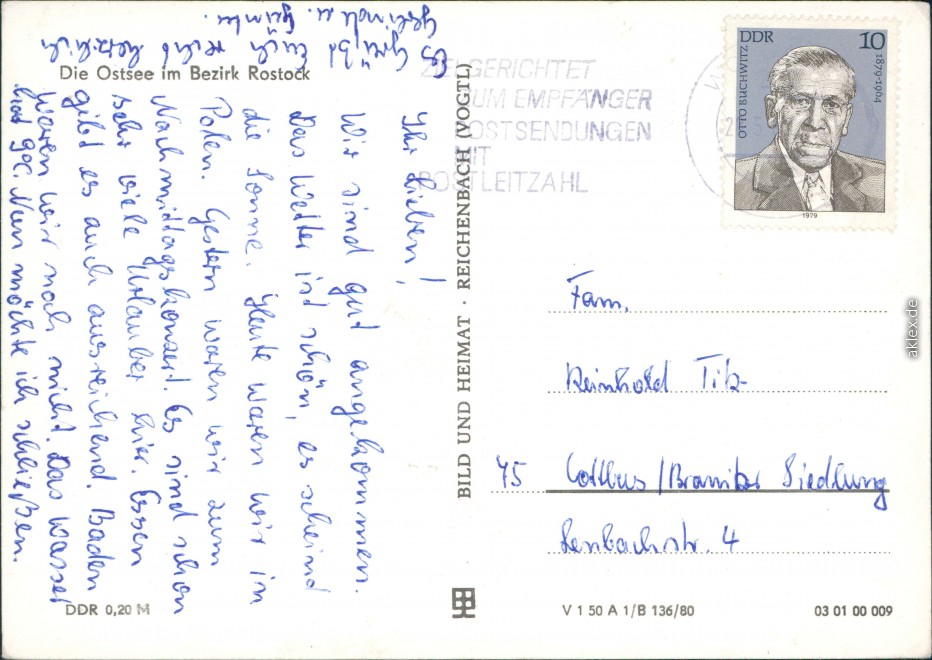 Die Ostsee im Bezirk Rostock
Ihr Lieben!
Wir sind gut angekommen.
Das Wetter ist schön, es scheind
die Sonne. Heute waren wir in
Polen. Gestern waren wir zum
Nachmittagskonzert. Es sind schon
sehr viele Urlauber hier. Essen
gibt es auch ausreichend. Baden
waren wir noch nicht. Das Wasser
hat 9°C. Nun möchte ich schließen.
Es grüßt Euch recht herzlich
Gerlinde u. Günter.
BILD UND HEIMAT · REICHENBACH (VOGTL)
ZIELGERICHTET
ZUM EMPFÄNGER
POSTSENDUNGEN
MIT
POSTLEITZAHL
DDR 10
OTTO BUCHWITZ
1879-1964
1979
Fam.
Reinhold
75 Cottbus/Branitzer Siedlung
Lenbachstr. 4
DDR 0,20 M
V 1 50 A 1/B 136/80
03 01 00 009
aklex.de